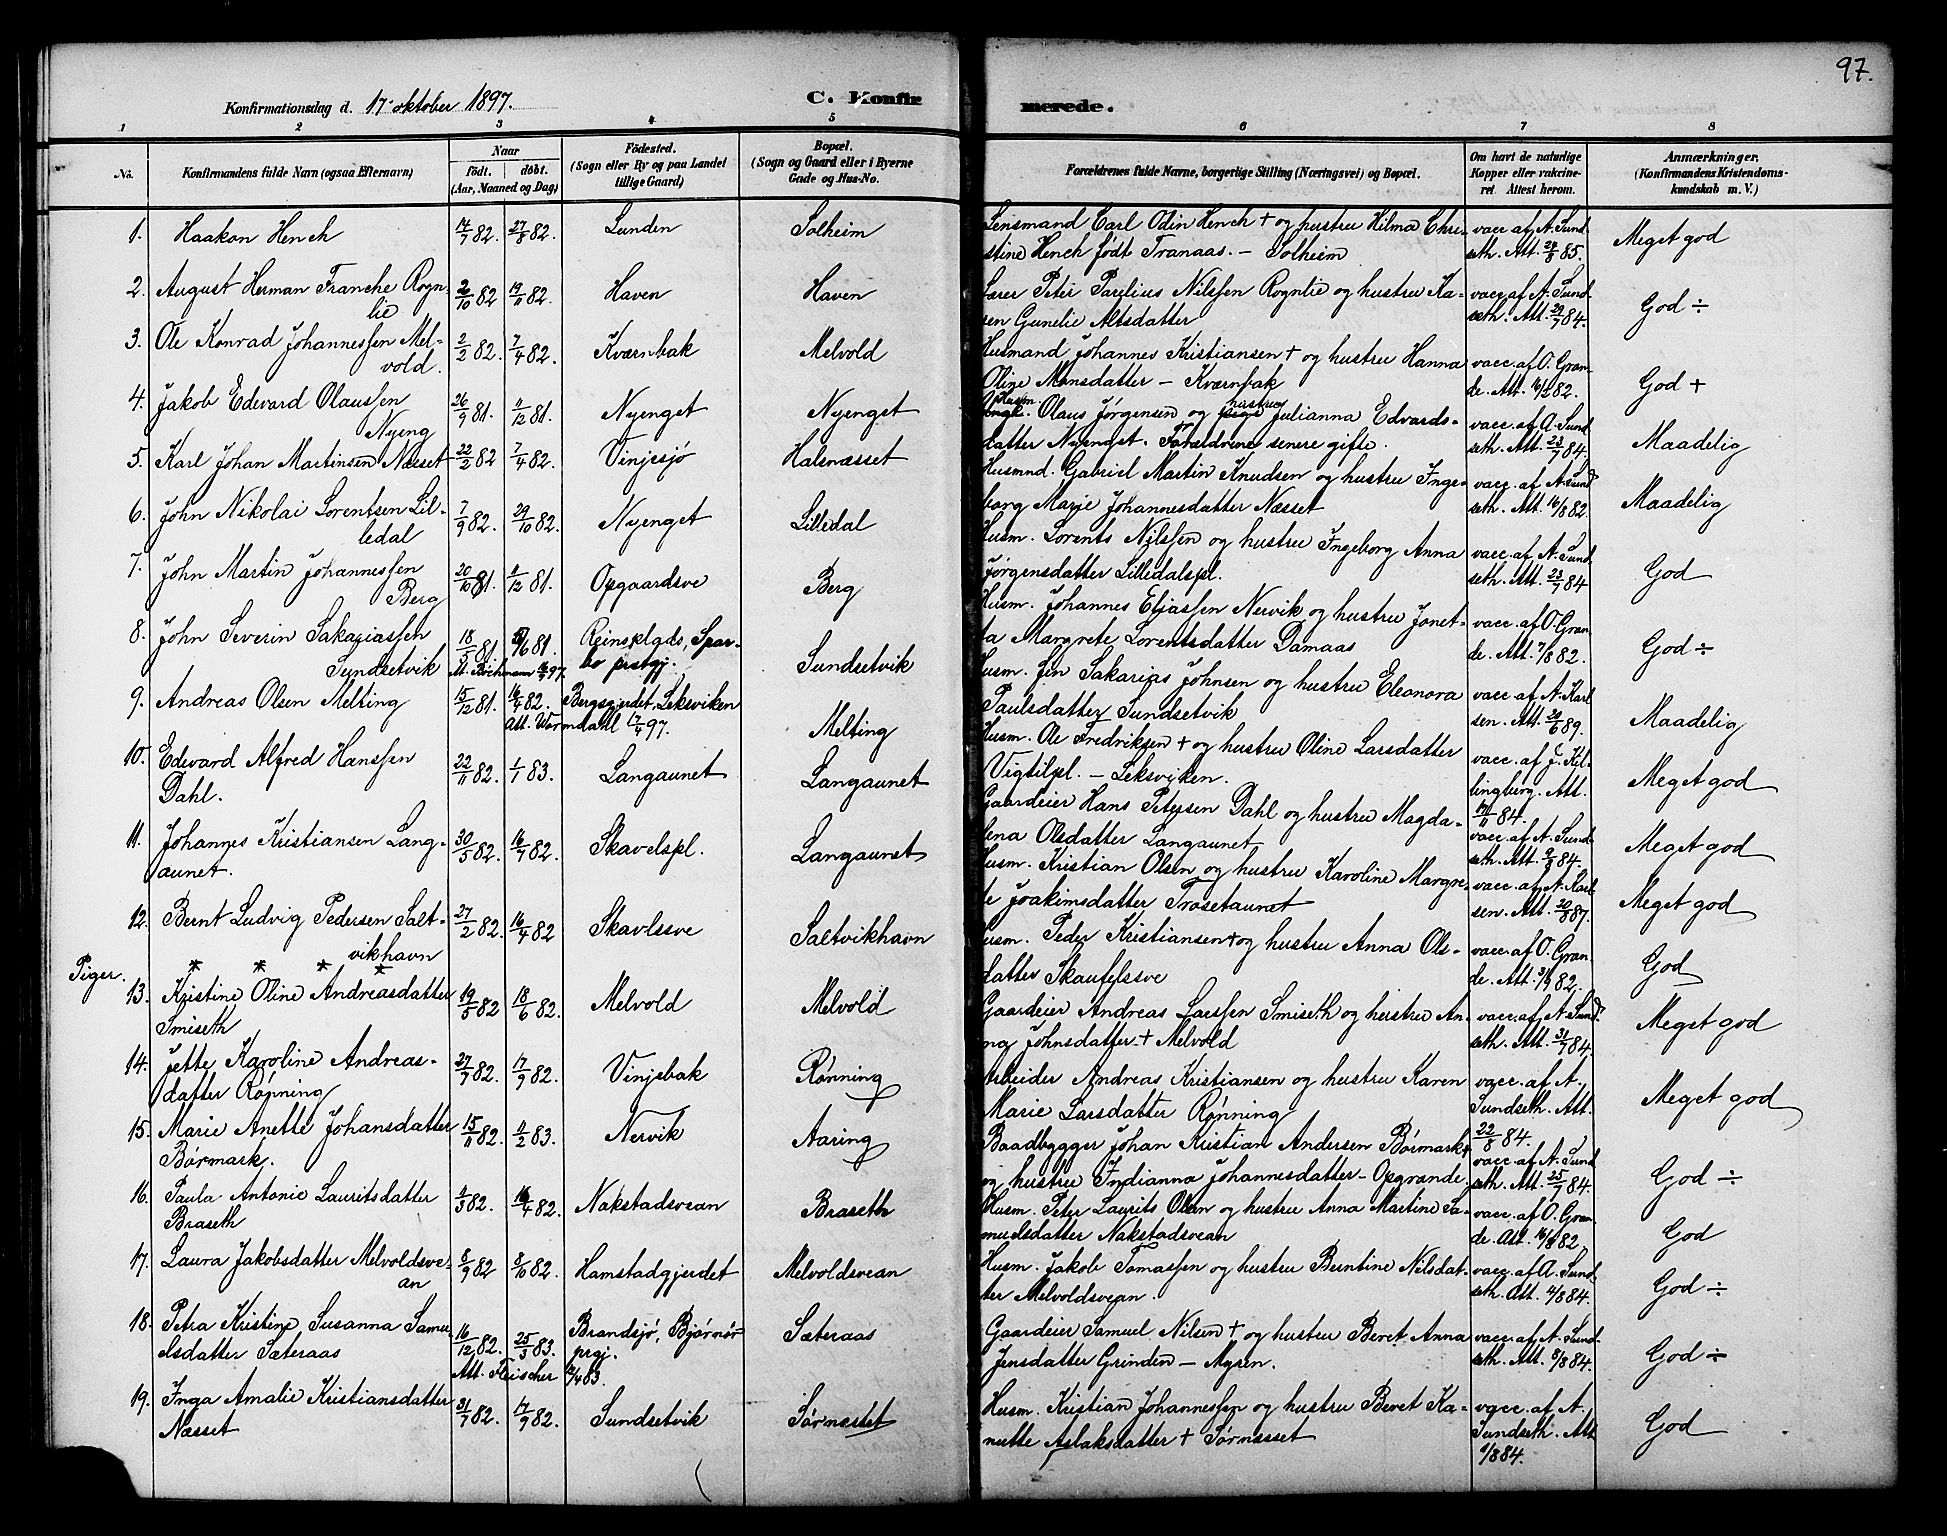 97.
Konfirmationsdag d. 17. oktober 1897.
C. Konfir
merede.
1 2 3 4 5 6 7 8
No.
Konfirmandens fulde Navn (ogsaa Efternavn)
Naar
födt. döbt.
(Aar, Maaned og Dag)
Födested.
(Sogn eller By og paa Landet
tillige Gaard)
Bopæl.
(Sogn og Gaard eller i Byerne
Gade og Hus-No.
Forældrenes fulde Navne, borgerlige Stilling (Næringsvei) og Bopæl.
Om havt de naturlige
Kopper eller vakcine-
ret. Attest herom.
Anmærkninger.
(Konfirmandens Kristendoms-
kundskab m. V.)
1. Haakon Hench 14/7 82. 27/8 82. Lunden Solheim
Lensmand Carl Odin Hench + og hustru Hilma Chri-
stine Hench født Tranaas. - Solheim
vacc. af A. Sund
seth. Att. 85.
Meget god
2. August Herman Franche Rogn
lie
2/10 82 19/11 82. Haven Haven
Lærer Peter Paulius Nilssen Rognlie og hustru Ka-
ren Gunelie Altsdatter
vacc. af A. Sund-
seth. Att. 29/7 84.
God ÷
3. Ole Konrad Johannessen Mel-
vold.
2/2 82. 7/4 82. Kværnbak Melvold
Husmand Johannes Kristiansen + og hustru Hanna
Oline Monsdatter - Kværnbak
vacc. af O. Gran-
de. Att. 82.
God +
4. Jakob Edevard Olaussen
Nyeng
26/9 81. 11/12 81. Nyenget Nyenget
Husm. hustru
Ungk. Olaus Jørgensen og pige Julianna Edvards-
datter Nyenget. Forældrene senere gifte.
vacc. af A. Sund
seth. Att. 23/7 84.
Maadelig
5. Karl Johan Martinsen Næsset 22/2 82 7/4 82. Vinjesjø Halsnæsset
Husmnd. Gabriel Martin Knudsen og hustru Inge-
borg Marie Johannesdatter Næsset
vacc. af A. Sund
seth. Att. 16/8 82.
Maadelig
6. John Nikolai Lorentsen Lil-
ledal
7/9 82. 29/10 82. Nyenget Lilledal
Husm. Lorents Nilssen og hustru Ingeborg Anna
Jørgensdatter Lilledalspl.
vacc. af A. Sund
seth. Att. 23/7 84
God
7. John Martin Johannessen
Berg
20/10 81. 11/12 81. Opgaardsve Berg
Husm. Johannes Eliassen Nervik og hustru Jonet-
ta Margrete Lorentsdatter Damaas
vacc. af O. Gran
de. Att. 7/8 82.
God ÷
8. John Severin Sakariassen
Sundsetvik
18/5 81. 5/6 81. Reinsplads, Spar-
bo prstgj.
Sundsetvik
Husm. Jen Sakarias Johnsen og hustru Eleonora
Paulsdatter Sundsetvik
vacc. af A. Karl
sen. Att. 89.
Maadelig
9. Andreas Olsen Melting 15/12 81. 16/4 82. Bergsgjerdet, Leksviken
Att. Wormdahl 17/4 97.
Melting
Husm. Ole Fredriksen + og hustru Oline Larsdatter
Vigtilpl. - Leksviken.
vacc. af J. Kil-
lingberg. Att.
17/11 84.
Meget god
10. Edevard Alfred Hanssen
Dahl.
22/11 82. 1/1 83. Langaunet Langaunet
Gaardeier Hans Petersen Dahl og hustru Magda-
lena Olsdatter Langaunet
vacc. af A. Sund-
seth. Att. 84.
Meget god
11. Johannes Kristiansen Lang-
aunet.
30/5 82. 16/7 82. Skavelspl. Langaunet
Husm. Kristian Olsen og hustru Karoline Margre-
te Joakimsdatter Trøsetaunet
vacc. af A. Karl
sen. Att. 87.
Meget god
12. Bernt Ludvig Pedersen Salt-
vikhavn
27/2 82. 16/4 82 Skavlssve Saltvikhavn
Husm. Peder Kristiansen + og hustru Anna Ols-
datter Skaufelssve
vacc. af O. Gran
de. Att. 82.
God
Piger. * * * *
13. Kristine Oline Andreasdatter
Smiseth
19/5 82 18/6 82. Melvold Melvold
Gaardeier Andreas Larssen Smiseth og hustru An-
na Johnsdatter + Melvold
vacc. af A. Sund
seth. Att. 31/7 84.
Meget god
14. Jette Karoline Andreas-
datter Rønning
27/7 82. 17/9 82. Vinjebak Rønning
Arbeider Andreas Kristiansen og hustru Karen
Marie Larsdatter Rønning
vacc. af A.
Sundseth. Att.
22/8 84.
Meget god
15. Marie Anette Johansdatter
Børmark.
15/11 82. 11/2 83. Nervik Aaring
Baadbygger Johan Kristian Andersen Børmark +
og hustru Indianna Johannesdatter - Opgrande.
vacc. af A. Sund
seth. Att. 25/7 84.
God ÷
16. Paula Antonie Lauritsdatter
Braseth
4/3 82. 16/4 82. Nakstadsvean Braseth
Husm. Peter Laurits Olsen og hustru Anna Martine Sa-
muelsdatter Nakstadsvean
vacc. af O. Gran
de. Att. 16/8 82.
God
17. Laura Jakobsdatter Melvoldsve-
an
8/9 82 8/10 82. Hamstadgjerdet Melvoldsvean
Husm. Jakob Tomassen og hustru Berntine Nilsdat-
ter Melvoldsvean.
vacc. af A. Sund
seth. Att. 4/8 84.
God ÷
18. Petra Kristine Susanna Samu-
elsdatter Sæteraas
16/12 82. 25/3 83. Brandsjø, Bjørnør
prgj.
Att. Fleischer
Sæteraas
Gaardeier Samuel Nilsen + og hustru Beret Anna
Jensdatter Grinden - Myren.
vacc. af A. Sund-
seth. Att. 8/8 84.
God ÷
19. Inga Amalie Kristiansdatter
Næsset
31/7 82. 17/9 82. Sundsetvik Sørnæsset
Husm. Kristian Johannessen og hustru Beret Ka-
nutte Aslaksdatter + Sørnæsset
vacc. af A.
Sundseth. Att
1/8 84.
God